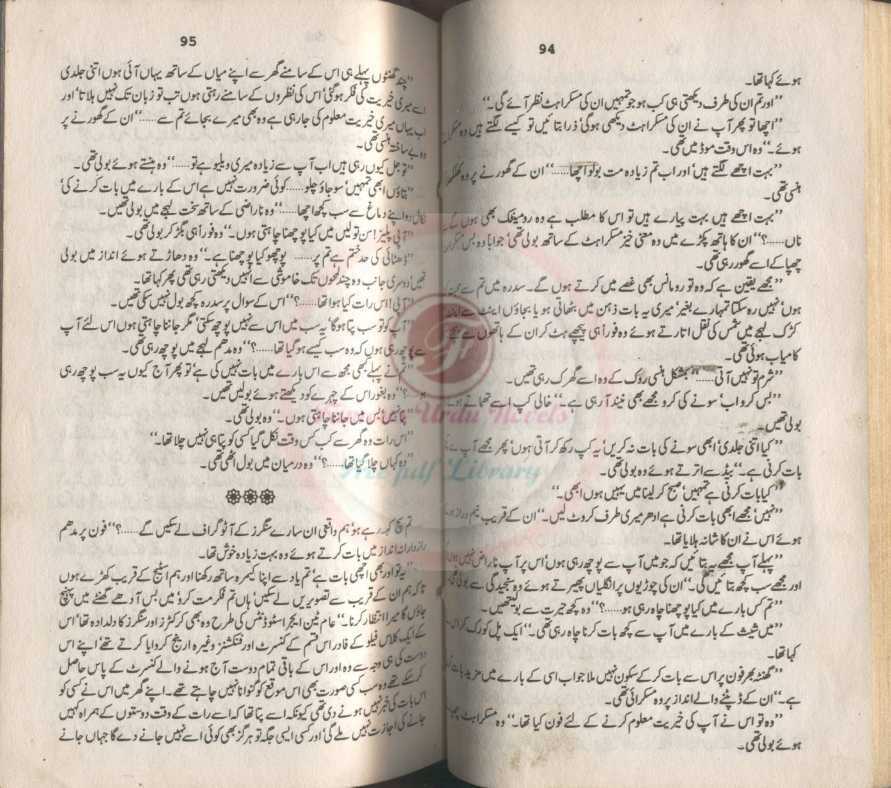 94
ہوئے کہا تھا۔
”اور تم ان کی طرف دیکھتی ہی کب ہو جو تمہیں ان کی مسکراہٹ نظر آئے گی۔“
”اچھا تو پھر آپ نے ان کی مسکراہٹ دیکھی ہو گی‘ ذرا بتائیں تو کیسے لگتے ہیں وہ
ہوئے۔“ وہ اس وقت موڈ میں تھی۔
”بہت اچھے لگتے ہیں‘ اور اب تم زیادہ مت بولو اچھا......“ ان کے گھورنے پر وہ
ہنسی تھی۔
”بہت اچھے ہیں بہت پیارے ہیں تو اس کا مطلب ہے وہ رومینٹک بھی ہوں گے۔
ناں......؟“ ان کا ہاتھ پکڑے میں وہ معنی خیز مسکراہٹ کے ساتھ بولی تھی‘ جواباً وہ بس
چھپا کے اسے گھور رہی تھی۔
”مجھے یقین ہے کہ وہ تو رومانس بھی غصے میں کرتے ہوں گے۔ سدرہ میں تم سے
ہوں‘ نہیں رہ سکتا تمہارے بغیر‘ میری یہ بات ذہن میں بٹھاتی ہو یا بجاؤں اینٹ سے
کڑک لہجے میں شمس کی نقل اتارتے ہوئے وہ فوراً ہی پیچھے ہٹ کر ان کے ہاتھوں سے
کامیاب ہوئی تھی۔
”شرم تو نہیں آتی......“ بمشکل ہنسی روک کے وہ اسے گھرک رہی تھیں۔
”بس کرو اب‘ سونے کی کرو مجھے بھی نیند آ رہی ہے۔“ خالی کپ اسے تھماتے
بولی تھیں۔
”کیا اتنی جلدی‘ ابھی سونے کی بات نہ کریں‘ یہ کپ رکھ کر آتی ہوں‘ پھر مجھے آپ
بات کرنی ہے۔“ بیڈ سے اترتے ہوئے وہ بولی تھی۔
”کیا بات کرنی ہے تمہیں‘ صبح کر لینا میں یہیں ہوں ابھی۔“
”نہیں‘ مجھے ابھی بات کرنی ہے ادھر میری طرف کروٹ لیں۔“ ان کے قریب نیم دراز
ہوئے اس نے ان کا شانہ ہلایا تھا۔
”پہلے آپ مجھے یہ بتائیں کہ جو میں آپ سے پوچھ رہی ہوں‘ اس پر آپ ناراض نہیں
اور مجھے سب کچھ بتائیں گی۔“ ان کی چوڑیوں پر انگلیاں پھیرتے ہوئے وہ سنجیدگی سے بولی
”تم کس بارے میں کیا پوچھنا چاہ رہی ہو......؟“ وہ کچھ حیرت سے بولی تھیں۔
”میں شیث کے بارے میں آپ سے کچھ بات کرنا چاہ رہی تھی۔“ ایک پل کو رک کر
کہا تھا۔
”گھنٹہ بھر فون پر اس سے بات کر کے سکون نہیں ملا جو اب اسی کے بارے میں مزید بات
ہے۔“ ان کے ڈپٹنے والے انداز پر وہ مسکرائی تھی۔
”وہ تو اس نے آپ کی خیریت معلوم کرنے کے لئے فون کیا تھا۔“ وہ مسکراہٹ
ہوئے بولی تھی۔
95
”چند گھنٹوں پہلے ہی اس کے سامنے گھر سے اپنے میاں کے ساتھ یہاں آئی ہوں اتنی جلدی
اسے میری خیریت کی فکر ہو گئی‘ اس کی نظروں کے سامنے رہتی ہوں تب تو زبان تک نہیں ہلاتا‘ اور
اب یہاں میری خیریت معلوم کی جا رہی ہے وہ بھی میرے بجائے تم سے......“ ان کے گھورنے پر
وہ بے ساختہ ہنسی تھی۔
”تو جل کیوں رہی ہیں اب آپ سے زیادہ میری ویلیو ہے تو......“ وہ ہنستے ہوئے بولی تھی۔
”بتاؤں ابھی تمہیں‘ سو جاؤ چلو...... کوئی ضرورت نہیں ہے اس کے بارے میں بات کرنے کی‘
نکال دو اپنے دماغ سے سب کچھ اچھا......“ وہ ناراضی کے ساتھ سخت لہجے میں بولی تھیں۔
”آپی پلیز! سن تو لیں میں کیا پوچھنا چاہتی ہوں۔“ وہ فوراً ہی بگڑ کر بولی تھی۔
”ڈھٹائی کی حد ختم ہے تم پر...... پوچھو کیا پوچھنا ہے۔“ وہ دھاڑتے ہوئے انداز میں بولی
تھیں‘ دوسری جانب وہ چند لمحوں تک خاموشی سے انہیں دیکھتی رہی تھی پھر کہا تھا۔
”آپی! اس رات کیا ہوا تھا......؟“ اس کے سوال پر سدرہ کچھ بول نہیں سکی تھیں۔
”آپ کو تو سب پتا ہو گا‘ یہ سب میں اس سے نہیں پوچھ سکتی‘ مگر جاننا چاہتی ہوں اس لئے آپ
سے پوچھ رہی ہوں کہ وہ سب کیسے ہو گیا تھا......؟“ وہ مدھم لہجے میں پوچھ رہی تھی۔
”تم نے پہلے بھی مجھ سے اس بارے میں بات نہیں کی ہے‘ تو پھر آج کیوں یہ سب پوچھ رہی
ہو۔“ وہ بغور اس کے چہرے کو دیکھتے ہوئے بولیں تھیں۔
”بتائیں‘ بس میں جاننا چاہتی ہوں۔“ وہ بولی تھی۔
”اس رات وہ گھر سے کب کس وقت نکل گیا کسی کو پتا ہی نہیں چلا تھا۔“
”وہ کہاں چلا گیا تھا......؟“ وہ درمیان میں بول اٹھی تھی۔
تم سچ کہہ رہے ہو‘ ہم واقعی ان سارے سنگرز کے آٹوگراف لے سکیں گے......؟“ فون پر مدھم
رازدارانہ انداز میں بات کرتے ہوئے وہ بہت زیادہ خوش تھا۔
”یہ تو اور بھی اچھی بات ہے‘ تم یاد سے اپنا کیمرہ ساتھ رکھنا اور ہم اسٹیج کے قریب کھڑے ہوں
تاکہ ہم ان کے قریب سے تصویریں لے سکیں‘ ہاں تم فکر مت کرو‘ میں بس آدھے گھنٹے میں پہنچ
جاؤں گا میرا انتظار کرنا۔“ عام ٹین ایجر اسٹوڈنٹس کی طرح وہ بھی کرکٹرز اور سنگرز کا دلدادہ تھا‘ اس
کے ایک کلاس فیلو کے فادر اس قسم کے کنسرٹ اور فنکشنز وغیرہ ارینج کروایا کرتے تھے‘ اپنے اس
دوست کی ہی وجہ سے وہ اور اس کے باقی تمام دوست آج ہونے والے کنسرٹ کے پاس حاصل
کر سکے تھے وہ سب کسی صورت بھی اس موقع کو گنوانا نہیں چاہتے تھے۔ اپنے گھر میں اس نے کسی کو
اس بات کی خبر نہیں ہونے دی تھی کیونکہ اسے پتا تھا کہ اسے رات کے وقت دوستوں کے ہمراہ کہیں
جانے کی اجازت نہیں ملے گی‘ اور کسی ایسی جگہ تو ہرگز بھی کوئی اسے نہیں جانے دے گا جہاں جانے
Urdu Novels
pdf Library